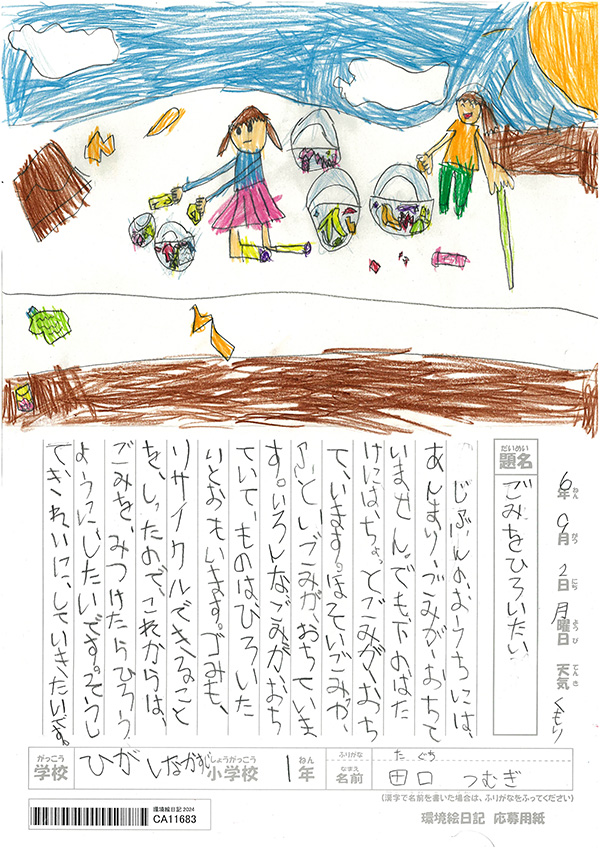 6年 9月 2日 月曜日 天気 くもり
ねん がつ にち ようび てんき
だいめい
題名
ごみをひろいたい
じぶんのおうちには、
あんまり、ごみがおちて
いません。でも下のはた
けには、ちょっとごみがおち
て、います。ほそいごみが、
ふといごみが、おちていま
す。いろんなごみがおち
ていて、ものはひろいた
いとおもいます。ゴみも、
リサイクルできること
を、しったので、これからは、
ごみを、みつけたらひろう
ようにしたいです。そうし
てきれいに、していきたいです。
がっこう しょうがっこう ねん
学校 小学校 1年
ふりがな た ぐち
なまえ
名前 田口 つむぎ
(漢字で名前を書いた場合は、ふりがなをふってください)
環境絵日記2024
CA11683
環境絵日記 応募用紙